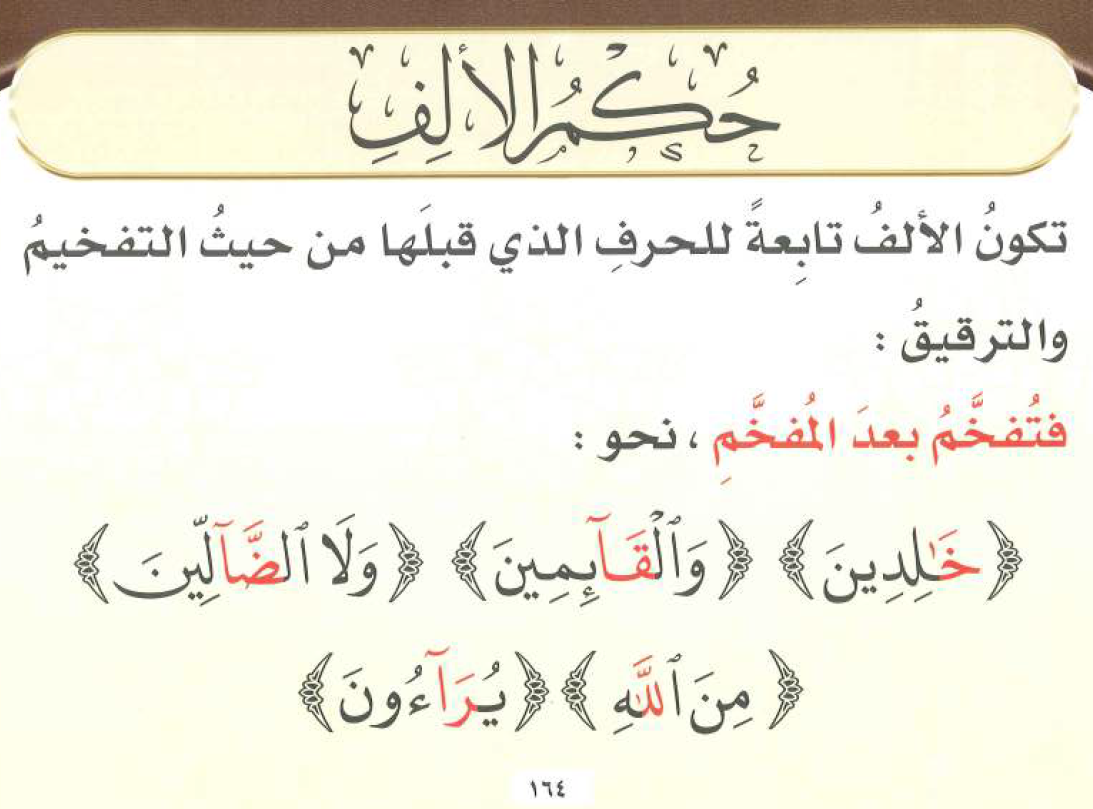 حُكْمُ الأَلِفِ
تكونُ الألفُ تابِعةً للحرفِ الذي قبلَها من حيثُ التفخيمُ
والترقيقُ :
فتُفخَّمُ بعدَ المُفخَّمِ ، نحو :
﴿خَٰلِدِينَ﴾ ﴿وَٱلْقَآئِمِينَ﴾ ﴿وَلَا ٱلضَّآلِّينَ﴾
﴿مِنَ ٱللَّهِ﴾ ﴿يُرَآءُونَ﴾
١٦٤